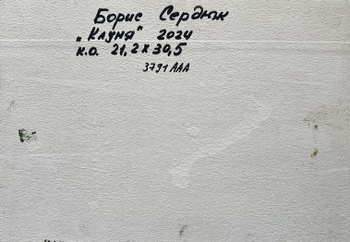 Борис Сердюк
„Клуня" 2024
к.о. 21,2 х 30,5
3791 ААА